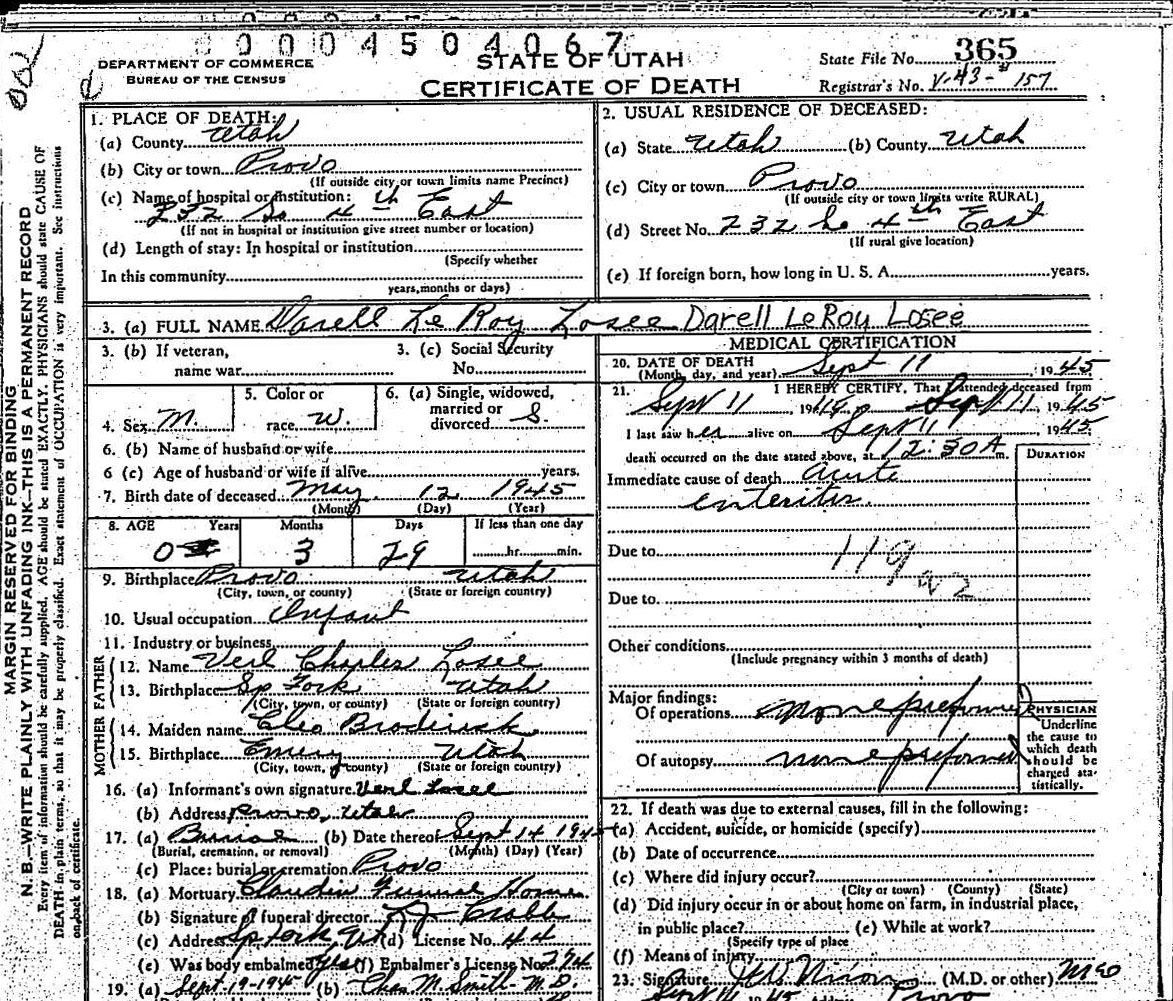 0 0 0 0 4 5 0 4 0 6 7
DEPARTMENT OF COMMERCE
BUREAU OF THE CENSUS
STATE OF UTAH
CERTIFICATE OF DEATH
State File No. 365
Registrar's No. V-43-# 157
MARGIN RESERVED FOR BINDING
N. B.—WRITE PLAINLY WITH UNFADING INK—THIS IS A PERMANENT RECORD
Every item of information should be carefully supplied. AGE should be stated EXACTLY. PHYSICIANS should state CAUSE OF
DEATH in plain terms, so that it may be properly classified. Exact statement of OCCUPATION is very important. See instructions
on back of certificate.
1. PLACE OF DEATH:
(a) County Utah
(b) City or town Provo
(If outside city or town limits name Precinct)
(c) Name of hospital or institution:
232 So 4th East
(If not in hospital or institution give street number or location)
(d) Length of stay: In hospital or institution
(Specify whether
In this community
years, months or days)
2. USUAL RESIDENCE OF DECEASED:
(a) State Utah (b) County Utah
(c) City or town Provo
(If outside city or town limits write RURAL)
(d) Street No. 232 So 4th East
(If rural give location)
(e) If foreign born, how long in U. S. A. years.
3. (a) FULL NAME Darell Le Roy Losee Darell LeRoy Losee
3. (b) If veteran,
name war
3. (c) Social Security
No.
4. Sex M.
5. Color or
race W.
6. (a) Single, widowed,
married or
divorced S.
6. (b) Name of husband or wife
6 (c) Age of husband or wife if alive years.
7. Birth date of deceased May 12 1945
(Month) (Day) (Year)
8. AGE Years Months Days If less than one day
0 3 29 hr. min.
9. Birthplace Provo Utah
(City, town, or county) (State or foreign country)
10. Usual occupation Infant
11. Industry or business
FATHER
12. Name Verl Charles Losee
13. Birthplace Sp Fork Utah
(City, town, or county) (State or foreign country)
MOTHER
14. Maiden name Cleo Broderick
15. Birthplace Emery Utah
(City, town, county) (State or foreign country)
16. (a) Informant's own signature Verl Losee
(b) Address Provo, Utah
17. (a) Burial (b) Date thereof Sept 14 1945
(Burial, cremation, or removal) (Month) (Day) (Year)
(c) Place: burial or cremation Provo
18. (a) Mortuary Claudin Funeral Home
(b) Signature of funeral director
(c) Address Sp Fork Ut (d) License No. 44
(e) Was body embalmed yes (f) Embalmer's License No. 274
19. (a) Sept-19-194 (b) Chas M. Smith M.D.
MEDICAL CERTIFICATION
20. DATE OF DEATH
(Month, day, and year) Sept 11, 1945
21. I HEREBY CERTIFY, That I attended deceased from
Sept 11, 19 Sept 11 1945
I last saw h alive on Sept 11 1945
death occurred on the date stated above, at 12:30 A m.
DURATION
Immediate cause of death acute
enteritis
Due to
119 a2
Due to
Other conditions
(Include pregnancy within 3 months of death)
Major findings:
Of operations none preformed
Of autopsy none preformed
PHYSICIAN
Underline
the cause to
which death
should be
charged sta-
tistically.
22. If death was due to external causes, fill in the following:
(a) Accident, suicide, or homicide (specify)
(b) Date of occurrence
(c) Where did injury occur?
(City or town) (County) (State)
(d) Did injury occur in or about home on farm, in industrial place,
in public place? (e) While at work?
(Specify type of place
(f) Means of injury
23. Signature Nixon (M.D. or other) MD
Sept 11 1945 Provo